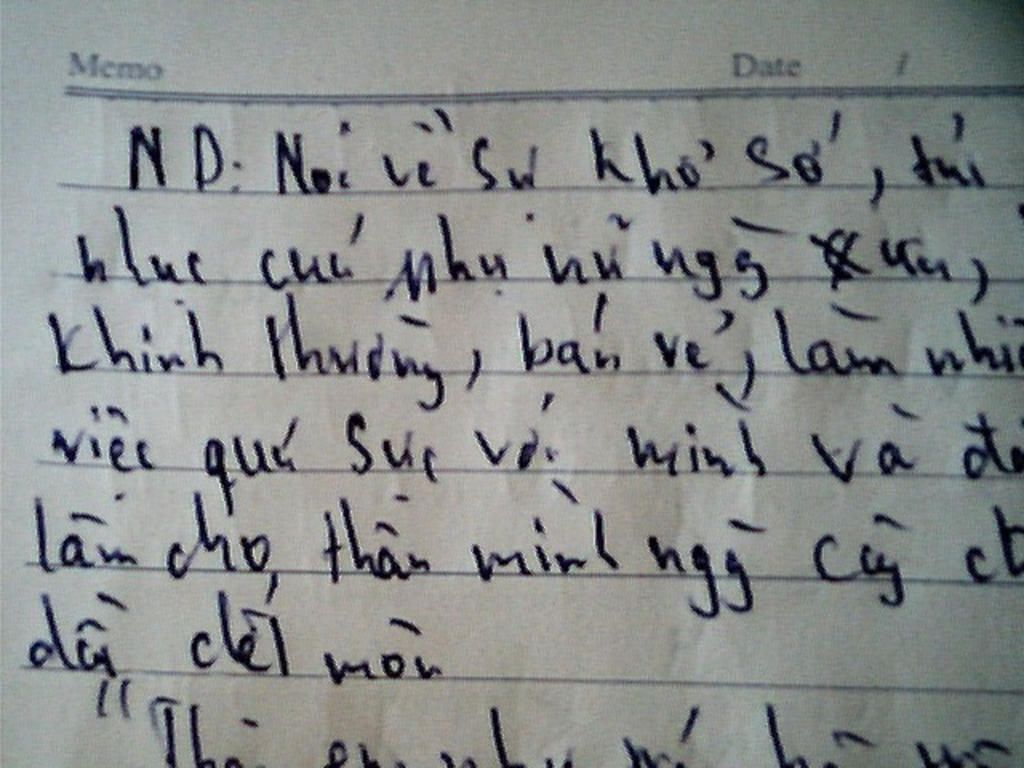 Memo Date /
ND: Nói về sự khổ sở, tủi
nhục của phụ nữ ngày xưa,
khinh thường, bán rẻ, làm
việc quá sức với mình và
làm cho thân mình ngày càng
dần chết mòn